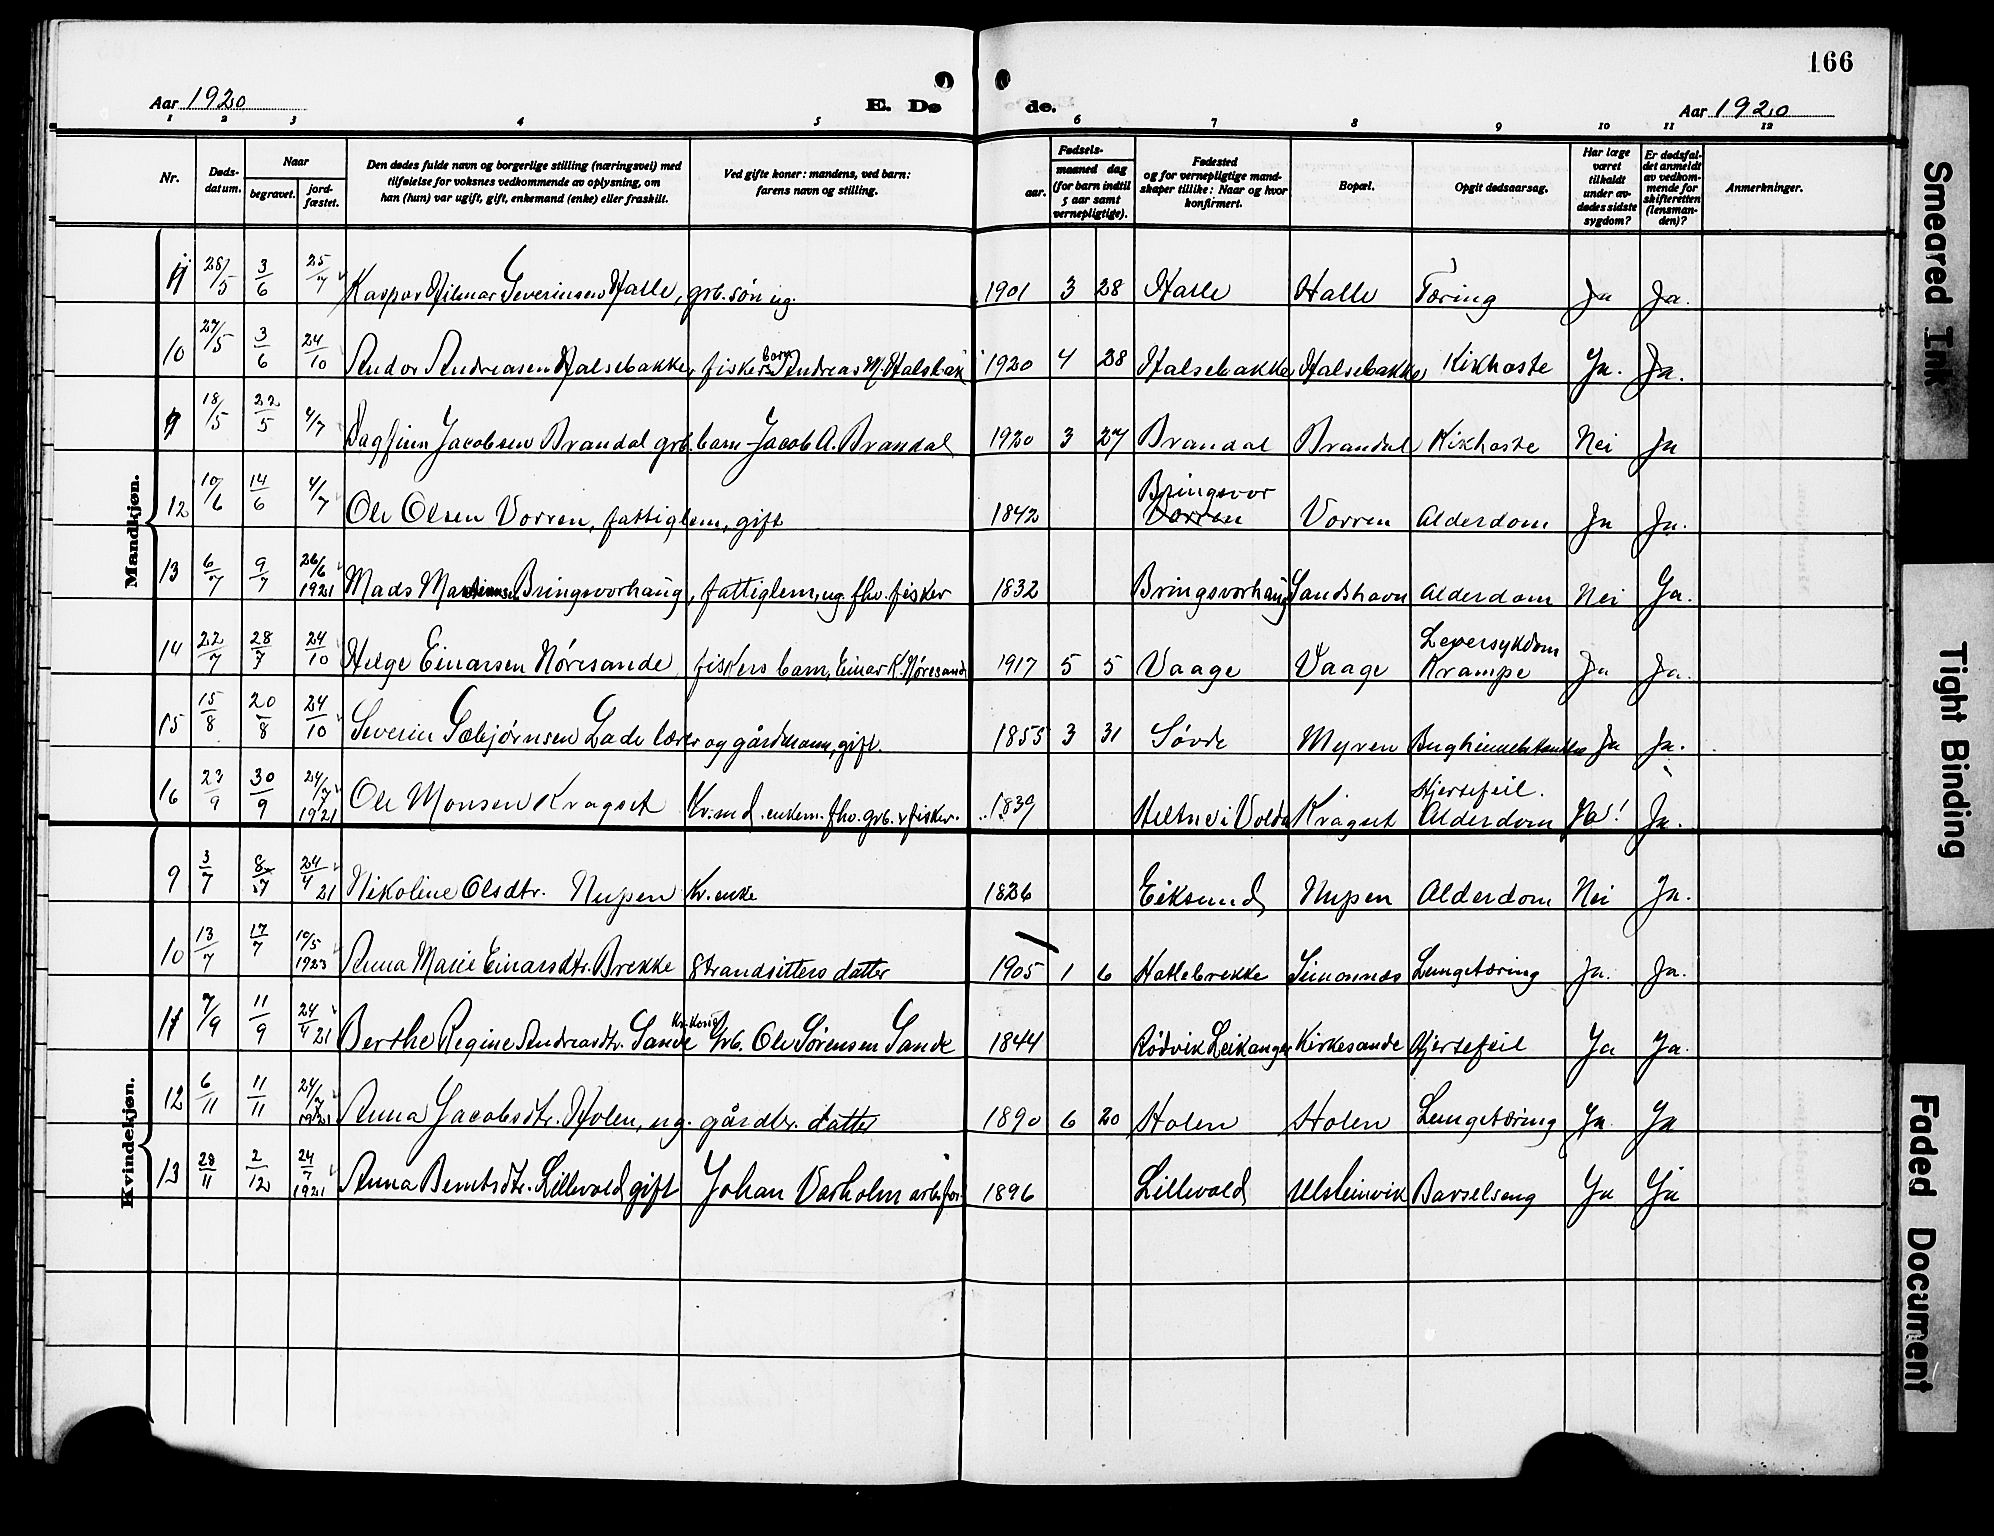 166
Aar 1920 E. Dø de. Aar 1920
1 2 3 4 5 6 7 8 9 10 11 12
Nr. Døds-datum. Naar begravet. jord-fæstet. Den dødes fulde navn og borgerlige stilling (næringsvei) med tilføielse for voksnes vedkommende av oplysning, om han (hun) var ugift, gift, enkemand (enke) eller fraskilt. Ved gifte koner: mandens, ved barn: farens navn og stilling. Fødsels- aar. maaned dag (for barn indtil 5 aar samt vernepligtige). Fødested og for vernepligtige mand-skaper tillike: Naar og hvor konfirmert. Bopæl. Opgit dødsaarsag. Har læge været tilkaldt under av-dødes sidste sygdom? Er dødsfal-det anmeldt av vedkom-mende for skifteretten (lensman-den)? Anmerkninger.
Mandkjøn.
11 28/5 3/6 25/7 Kaspar Hilmar Severinsen Halle, grb. søn ug. 1901 3 28 Halle Halle Tæring Ja Ja.
10 27/5 3/6 24/10 Andor Andreasen Halsebakke, fiskers barn Andreas M. Halsbak 1920 4 28 Halsebakke Halsebakke Kikhoste Ja. Ja.
9 18/5 22/5 4/7 Dagfinn Jacobsen Brandal grb. barn - Jacob A. Brandal 1920 3 27 Brandal Brandal Kikhoste Nei Ja
12 10/6 14/6 4/7 Ole Olsen Vorren, fattiglem, gift 1842 Bringsvor Vorren Vorren Alderdom Ja Ja.
13 6/7 9/7 26/6 1921 Mads Martinusen Bringsvorhaug, fattiglem, ug. fhv. fisker 1832 Bringsvorhaug Sandshavn Alderdom Nei Ja.
14 22/7 28/7 24/10 Helge Einarsen Nøresande, fiskers barn, Einar K. Nøresande 1917 5 5 Vaage Vaage Leversykdom Krampe Ja Ja.
15 15/8 20/8 24/10 Severin Sæbjørnsen Lade lærer og gårdmann, gift. 1855 3 31 Søvde Myren Ja Ja.
16 23/9 30/9 24/7 1921 Ole Monsen Kragset Kr.md. enkem. fhv. grb. & fisker. 1839 Heltne i Volda Kragset Hjertefeil. Alderdom Ja! Ja.
Kvindekjøn.
9 3/7 8/7 24/4 21 Nikoline Olsdtr. Nupen Kr. enke 1826 Eiksund Nupen Alderdom Nei Ja.
10 13/7 17/7 10/5 1923 Anna Marie Einarsdtr. Brekke Strandsitters datter 1905 1 6 Hatlebrekke Simonnes Lungetæring Ja. Ja.
11 7/9 11/9 24/4 21 Berthe Regine Andreasdtr. Sande Kr. kone Grb. Ole Sørensen Sande 1844 Rødvik Leikanger Kirkesande Hjertefeil Ja Ja.
12 6/11 11/11 24/7 1921 Anna Jacobsdtr. Holen, ug. gårdbr. datter 1890 6 20 Holen Holen Lungetæring Ja Ja
13 28/11 2/12 24/7 1921 Anna Berntsdtr. Lillevold gift Johan Varholm arb.for. 1896 Lillevold Ulsteinvik Barselseng Ja Ja
Smeared Ink
Tight Binding
Faded Document